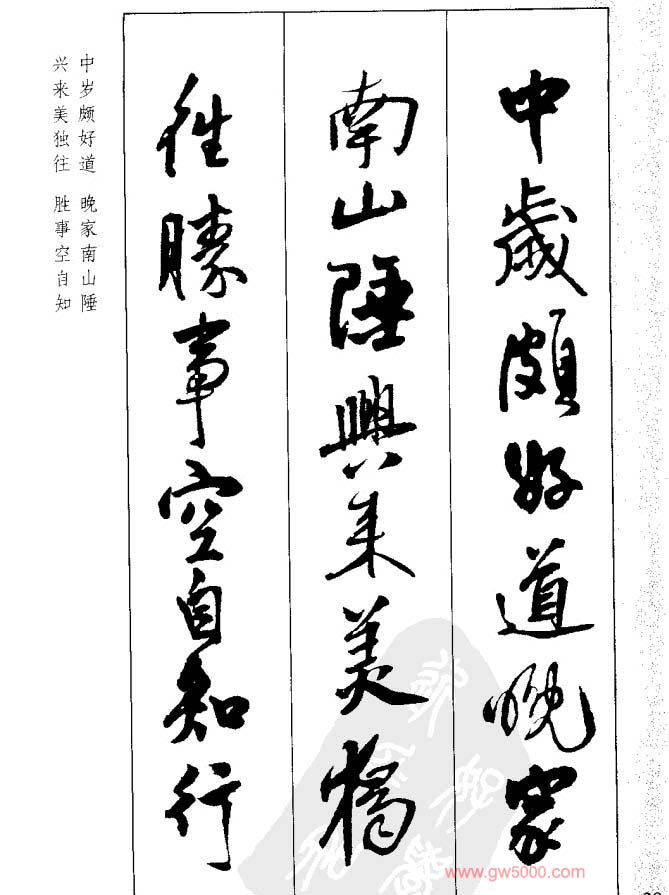 中歲頗好道晚家
南山陲興来美獨
往勝事空自知行
中岁颇好道 晚家南山陲
兴来美独往 胜事空自知
www.gw5000.com